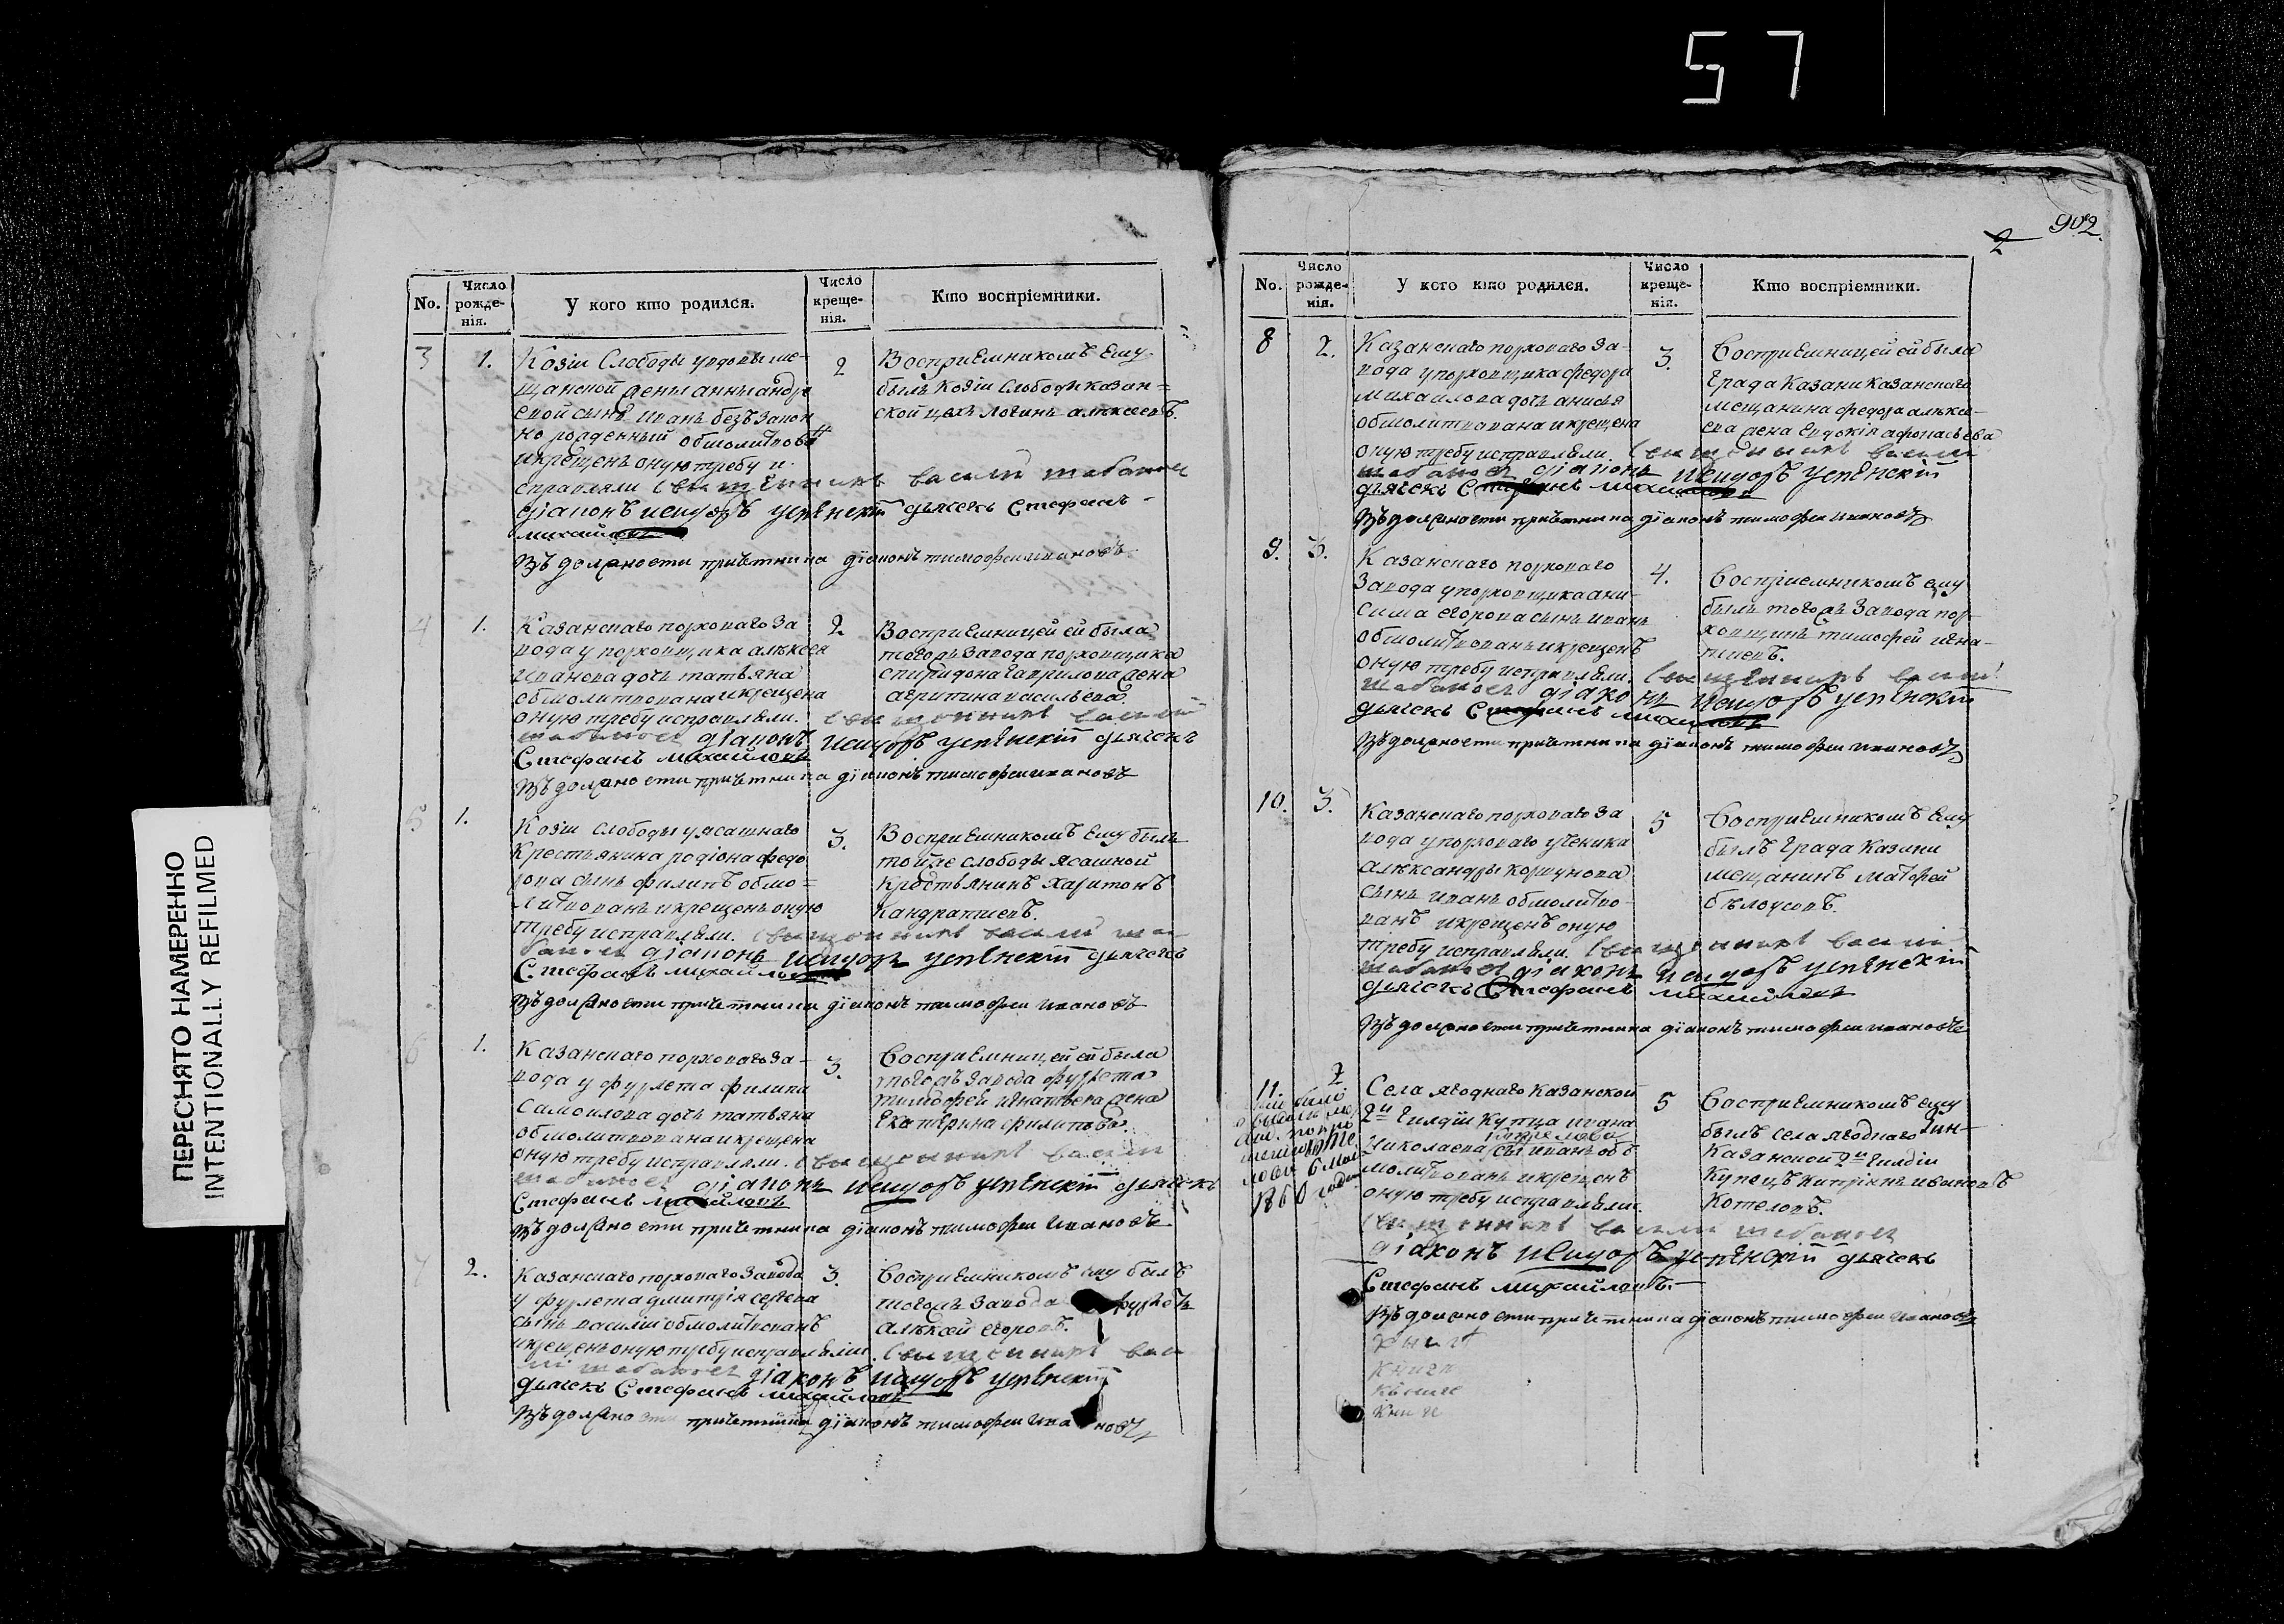 57
902.
2
ПЕРЕСНЯТО НАМЕРЕННО
INTENTIONALLY REFILMED
No.
Число рожде-нія.
У кого кто родился.
Число креще-нія.
Кто воспріемники.
3 1. 2
Козіи Слободы у вдовы ме-
щанской жены анны андре
евой сынъ иванъ без закон
но рожденный обмолитвов
и крещенъ оную требу и
справляли священникъ василий
діаконъ исидоръ успенскій дьячекъ Стефанъ
михайловъ
Въ должности причетника діаконъ тимофей ивановъ
Восприемникомъ Ему
былъ Козіи Слободы казан=
ской цехъ логинъ алексеевъ.
4 1. 2
Казанскаго порховаго За
вода у порховщика алексея
Иванова дочь татьяна
обмолитвована и крещена
оную требу исправляли. священникъ василий
діаконъ исидоръ успенскій дьячекъ
Стефанъ михайловъ
Въ должности причетника діаконъ тимофей ивановъ
Восприемницей ей была
тогожъ Завода порховщика
спиридона гаврилова жена
акритина васильева.
5 1. 3.
Козіи слободы у ясашнаго
Крестьянина родіона федо
рова сынъ филипъ обмо=
литвованъ и крещенъ оную
требу исправляли. священникъ василий
діаконъ исидоръ успенскій дьячекъ
Стефанъ михайловъ
Въ должности причетника діаконъ тимофей ивановъ
Восприемникомъ Ему былъ
тойже слободы Ясашной
Крестьянинъ харитонъ
Кандратиевъ.
6 1. 3.
Казанскаго порховаго За-
вода у фурлета филипа
Самоилова дочь татьяна
обмолитвована и крещена
оную требу исправляли. священникъ василий
діаконъ исидоръ успенскій дьячекъ
Стефанъ михайловъ
Въ должности причетника діаконъ тимофей Ивановъ
Восприемницей ей была
тогожъ Завода фурлета
тимофея игнатьева жена
Екатерина филипова.
7 2. 3.
Казанскаго порховаго Завода
у фурлета дмитрія сергева
сынъ василіи обмолитвованъ
и крещенъ оную требу исправляли. священникъ васи
діаконъ исидоръ успенскій
дьячекъ Стефанъ михайловъ
Въ должности причетника діаконъ тимофей Ивановъ
Восприемникомъ ему былъ
тогожъ Завода фурлетъ
алексей егоровъ.
No.
Число рожде-нія.
У кого кто родился.
Число креще-нія.
Кто воспріемники.
8 2. 3.
Казанскаго порховаго За-
вода у порховщика федора
михаилова дочь анисья
обмолитвована и крещена
оную требу исправляли. священникъ василий
діаконъ исидоръ успенскій
дьячекъ Стефанъ михайловъ
Въ должности причетника діаконъ тимофей ивановъ
Восприемницей ей была
Града Казани Казанскаго
мещанина федора алекси-
ева жена Евдокія афонасьева
9. 3. 4.
Казанскаго порховаго
Завода у порховщика ани-
сима егорова сынъ иванъ
обмолитвованъ и крещенъ
оную требу исправляли. священникъ василий
діаконъ исидоръ успенскій
дьячекъ Стефанъ михайловъ
Въ должности причетника діаконъ тимофей ивановъ
Восприемникомъ ему
былъ тогожъ Завода пор-
ховщикъ тимофей игна-
тиевъ.
10. 3. 5
Казанскаго порховаго За
вода у порховаго ученика
александры коршунова
сынъ иванъ обмолитво-
ванъ и крещенъ оную
требу исправляли. священникъ василий
діаконъ исидоръ успенскій
дьячекъ Стефанъ михайловъ
Въ должности причетника діаконъ тимофей ивановъ
Восприемникомъ Ему
былъ Града Казани
мещанинъ матфей
бѣлоусовъ.
11. 2 5
1860 года
Села ягоднаго Казанской
2й Гилдіи Купца ивана
Николаева сынъ иванъ об
молитвованъ и крещенъ
оную требу исправляли.
священникъ василий
діаконъ исидоръ успенскій дьячекъ
Стефанъ михайловъ.
Въ должности причетника діаконъ тимофей Ивановъ
Восприемникомъ ему
былъ села ягоднаго
Казанской 2й Гилдіи
Купецъ
Котеловъ.